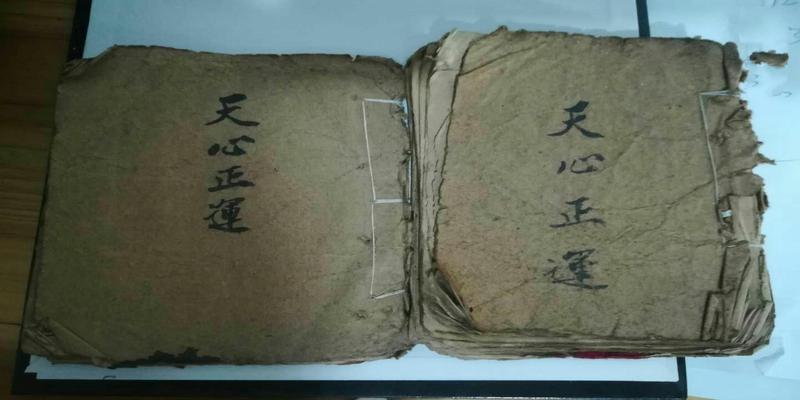 天心正運
天心正運